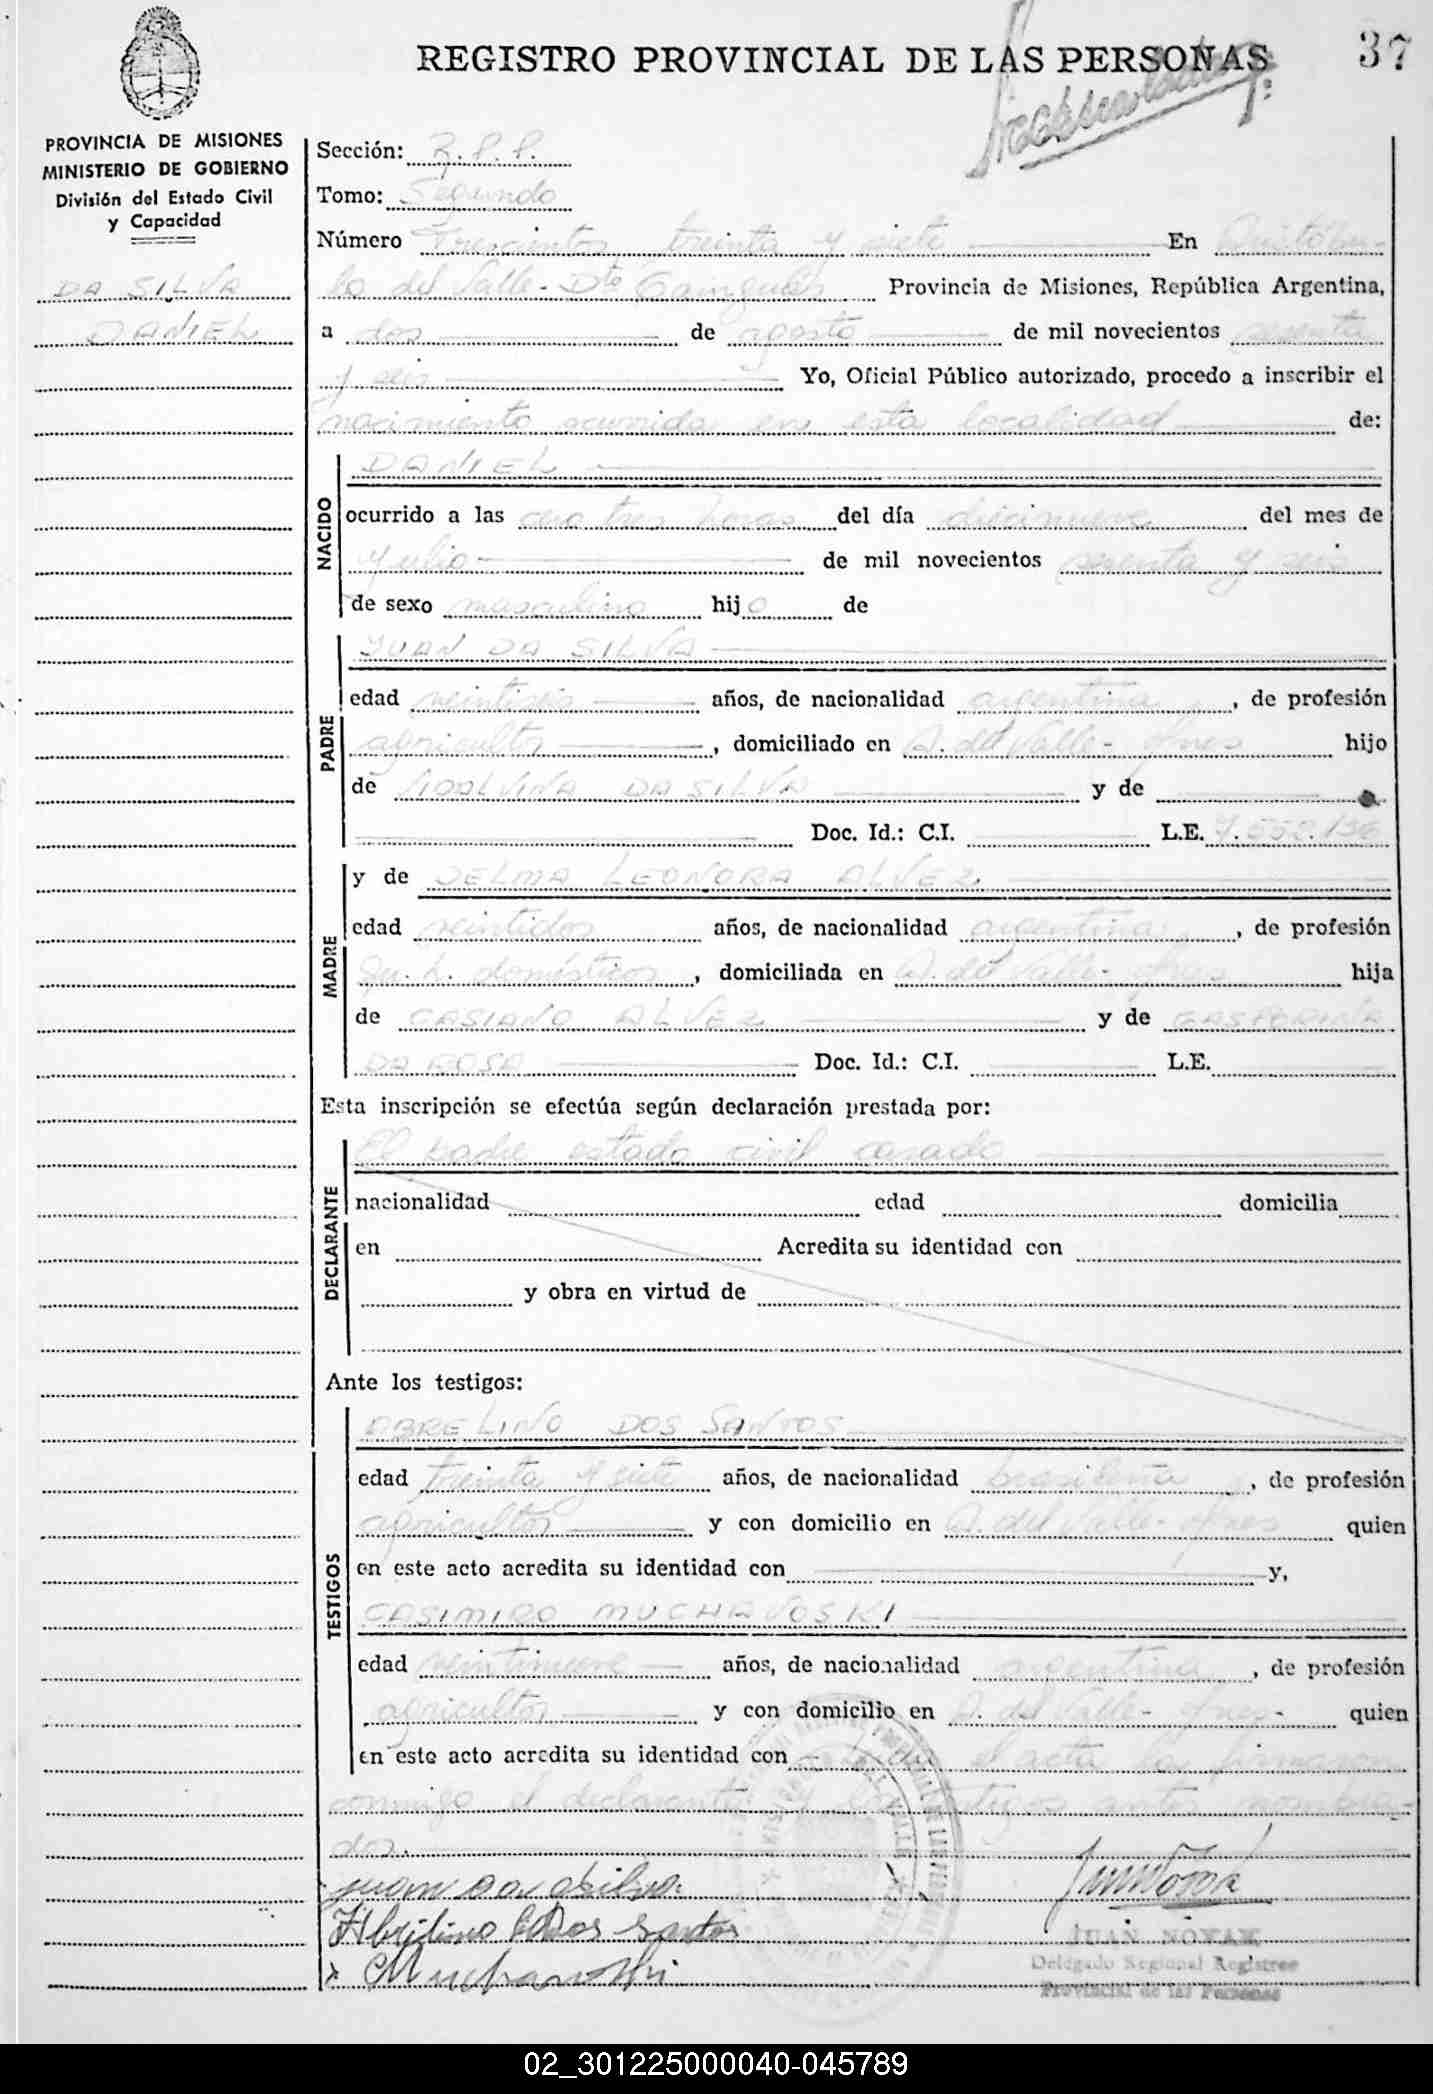 REGISTRO PROVINCIAL DE LAS PERSONAS
37
PROVINCIA DE MISIONES
MINISTERIO DE GOBIERNO
División del Estado Civil
y Capacidad
DA SILVA
DANIEL
Sección: R.P.P.
Tomo: Segundo
Número Trescientos treinta y siete En Aristóbu-
lo del Valle - Dto Cainguás Provincia de Misiones, República Argentina,
a dos de agosto de mil novecientos sesenta
y seis Yo, Oficial Público autorizado, procedo a inscribir el
nacimiento ocurrido en esta localidad de:
NACIDO
DANIEL
ocurrido a las cero tres horas del día diecinueve del mes de
Julio de mil novecientos sesenta y seis
de sexo masculino hijo de
PADRE
JUAN DA SILVA
edad veintiseis años, de nacionalidad argentina, de profesión
agricultor, domiciliado en A. del Valle - Mnes hijo
de DA SILVA y de
Doc. Id.: C.I. L.E.
MADRE
y de LEONORA ALVEZ
edad veintidos años, de nacionalidad argentina, de profesión
Qu. L. domésticos, domiciliada en A. del Valle - Mnes hija
de CASIANO ALVEZ y de
DA ROSA Doc. Id.: C.I. L.E.
Esta inscripción se efectúa según declaración prestada por:
DECLARANTE
El padre estado civil casado
nacionalidad edad domicilia
en Acredita su identidad con
y obra en virtud de
Ante los testigos:
TESTIGOS
ABRELINO DOS SANTOS
edad treinta y siete años, de nacionalidad brasileña, de profesión
agricultor y con domicilio en A. del Valle - Mnes quien
en este acto acredita su identidad con y,
CASIMIRO MUCHAVOSKI
edad veintinueve años, de nacionalidad argentina, de profesión
agricultor y con domicilio en A. del Valle - Mnes - quien
en este acto acredita su identidad con el acta la firmaron
conmigo el declarante y los testigos antes nombra-
dos.
Juan Da Silva
Dos Santos
JUAN NOVAK
Delegado Regional Registro
Provincial de las Personas
02_301225000040-045789